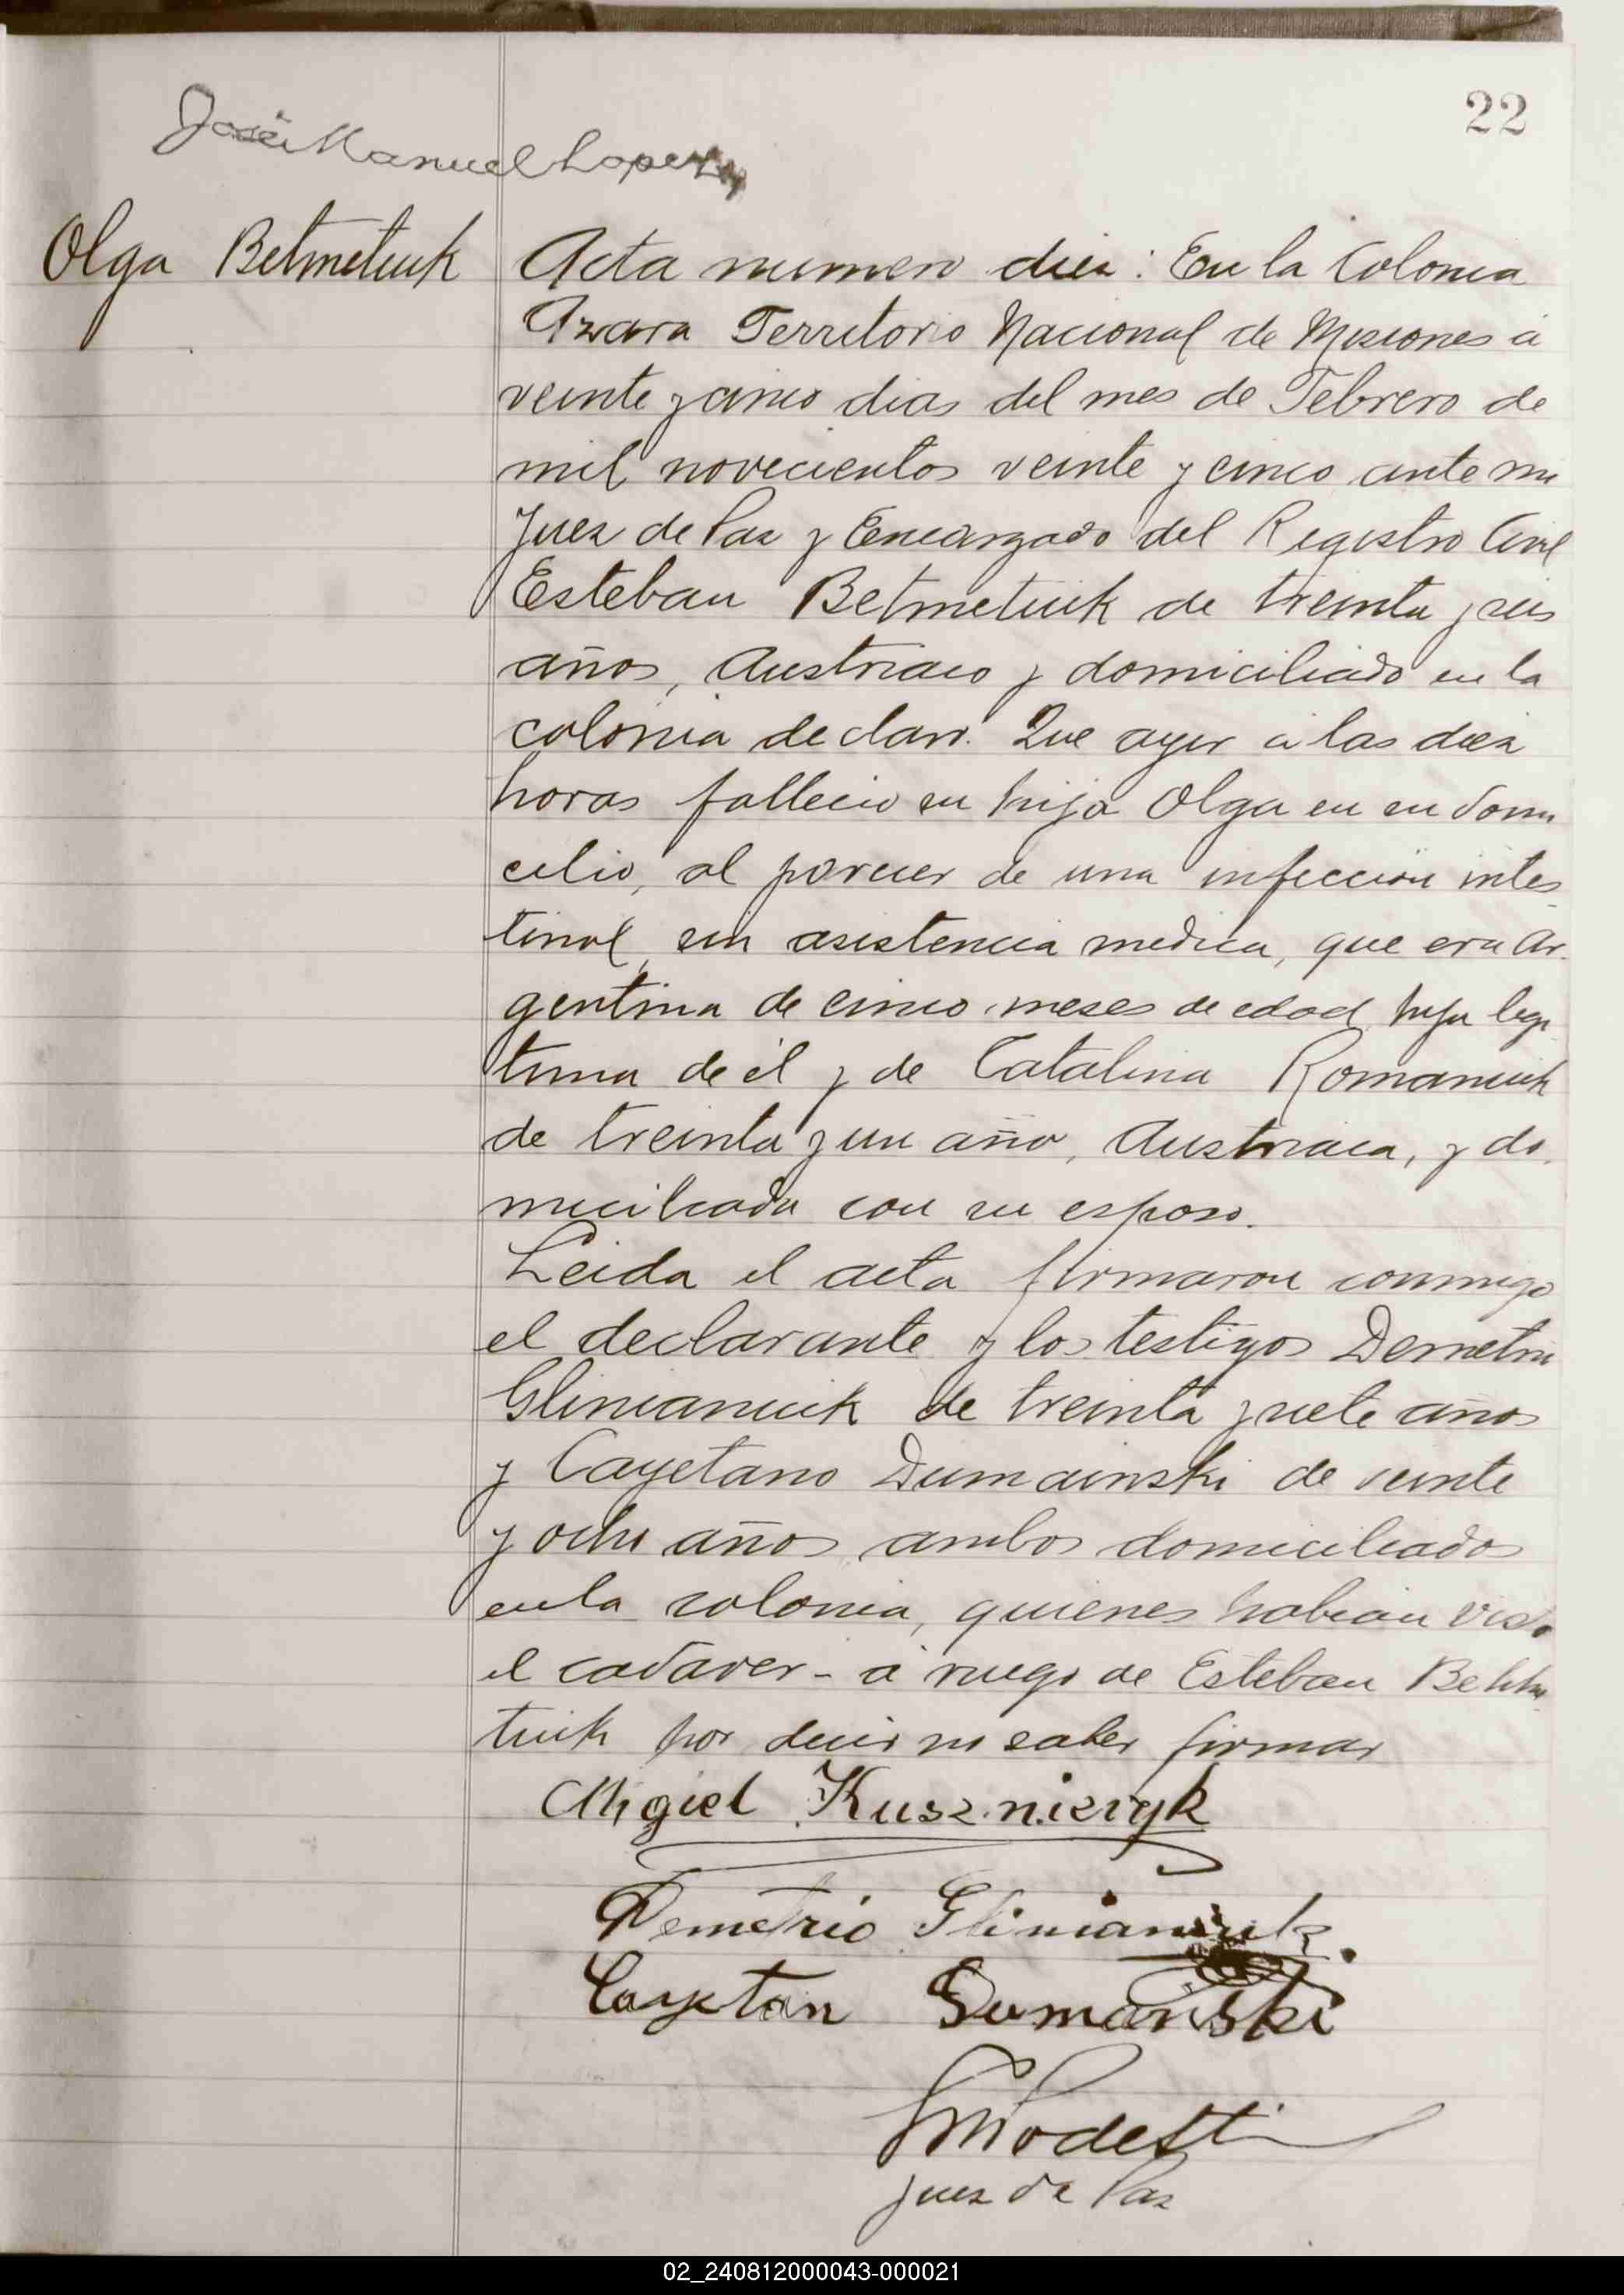 22
José Manuel Lopez
Olga Betmetiuk
Acta numero diez: En la Colonia
Azara Territorio Nacional de Misiones á
veinte y cinco dias del mes de Febrero de
mil novecientos veinte y cinco ante mi
Juez de Paz y Encargado del Registro Civil
Esteban Betmetiuk de treinta y seis
años, Austriaco y domiciliado en la
colonia declaró: Que ayer á las diez
horas fallecio su hija Olga en su domi
cilio, al parecer de una infección intes
tinal, sin asistencia medica, que era Ar-
gentina de cinco meses de edad hija legi
tima de él y de Catalina Romaniuk
de treinta y un año, Austriaca, y do-
miciliada con su esposo.
Leida el acta firmaron conmigo
el declarante y los testigos Demetrio
Glinianiuk de treinta y siete años
y Cayetano Dumainski de veinte
y ocho años ambos domiciliados
en la colonia, quienes habian visto
el cadaver - á ruego de Esteban Betme
tiuk por decir no saber firmar
Migiel Kusznieryk
Demetrio Glinianiuk.
Cayetan Dumański
Modesti
Juez de Paz
02_240812000043-000021